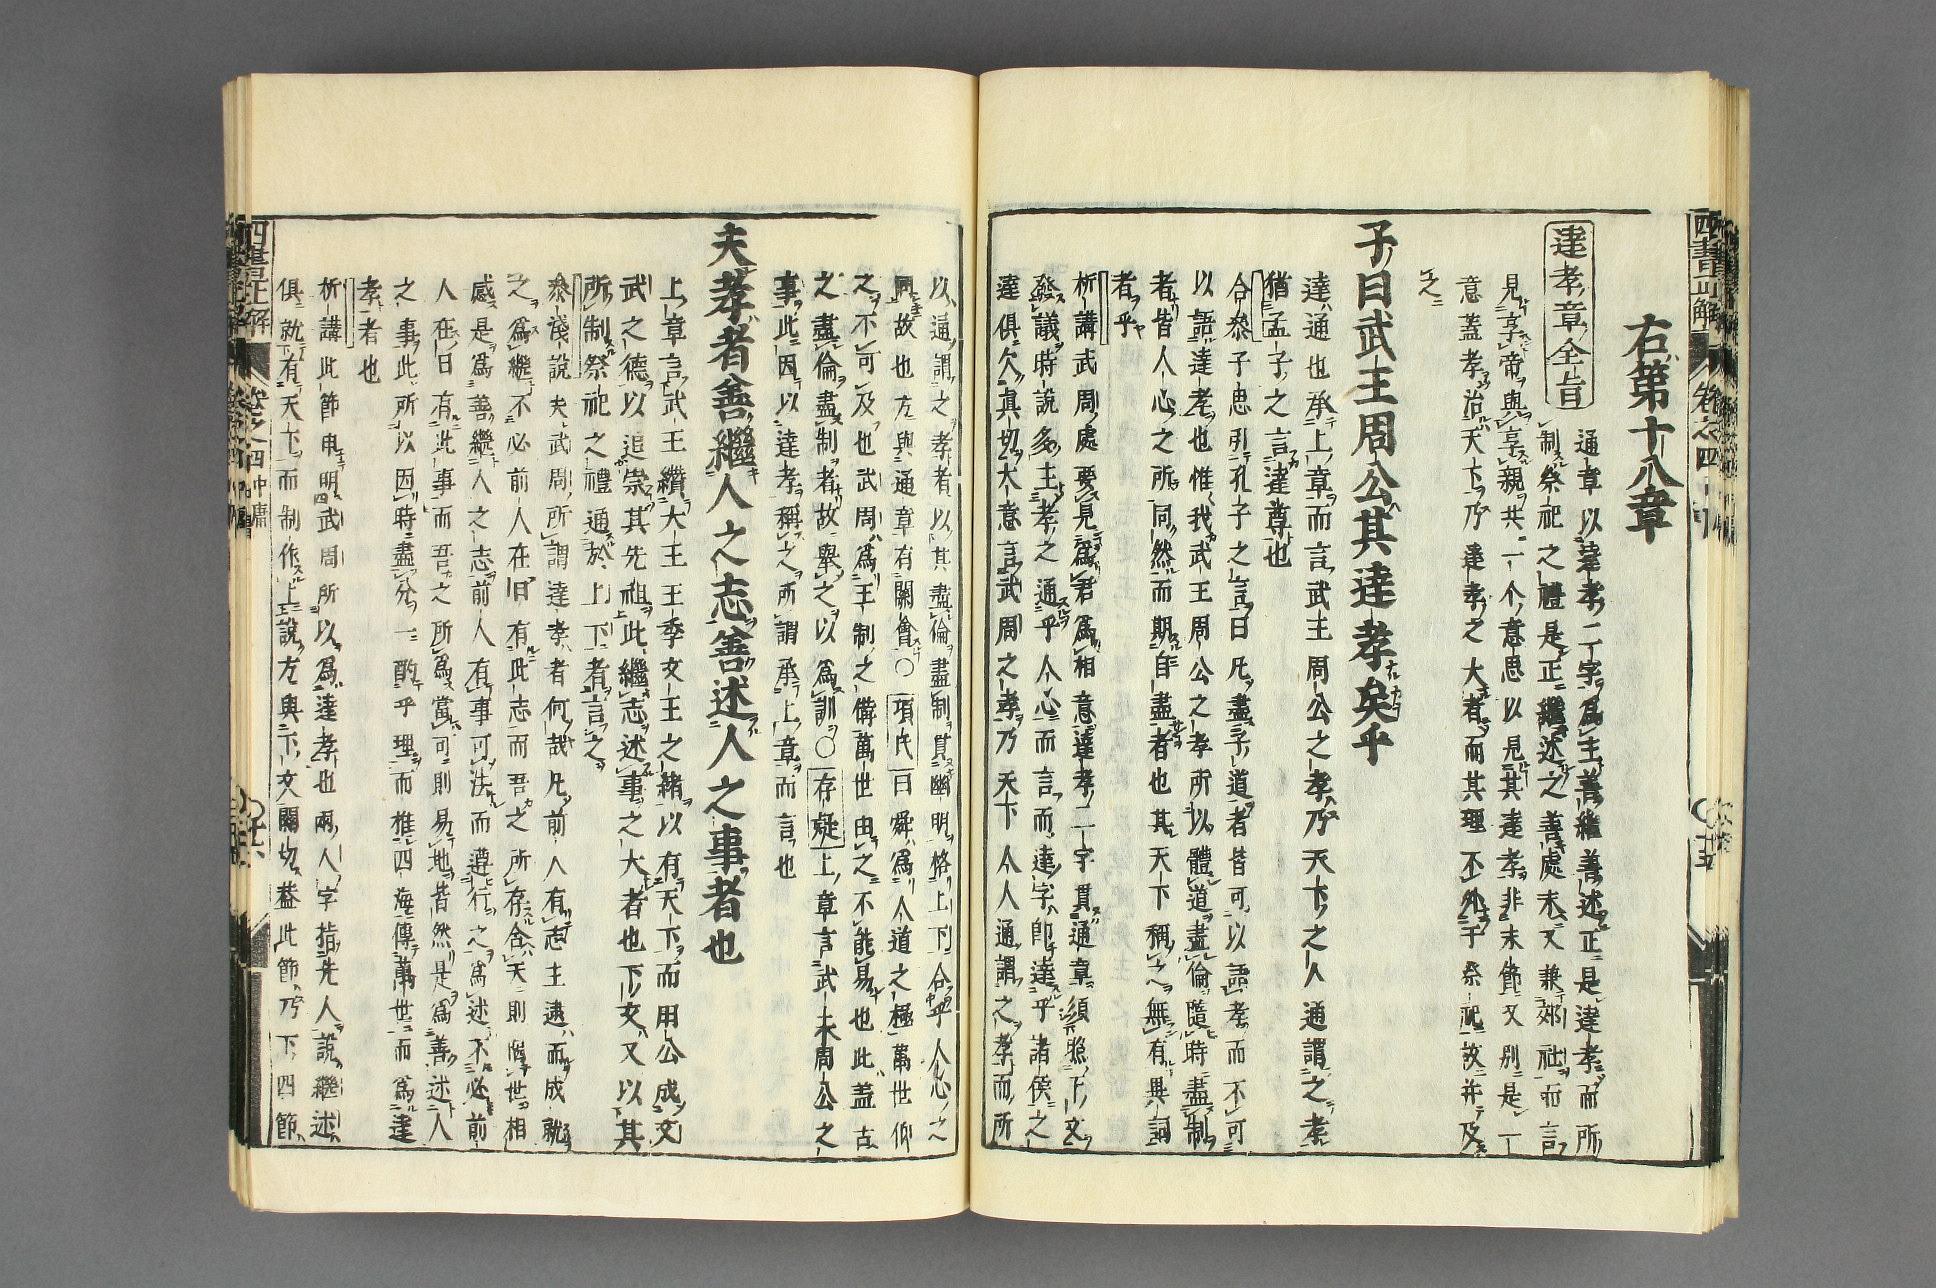 右第十八章
達孝章全旨
通章以達孝二字爲主善繼善述正是達孝而所
制祭祀之禮是正繼述之善處末又兼郊社而言
見享帝與享親共一个意思以見其達孝非末節又別是一
意蓋孝治天下乃達孝之大者而其理不外于祭祀故并及
之
子曰武王周公其達孝矣乎
達通也承上章而言武王周公之孝乃天下之人通謂之孝
猶孟子之言達尊也
合叅子思引孔子之言曰凡盡子道者皆可以語孝而不可
以語達孝也惟我武王周公之孝所以體道盡倫隨時盡制
者皆人心之所同然而期自盡者也其天下稱之無有異詞
者乎
析講武周處要見爲君爲相意達孝二字貫通章須照下文
發議時說多主孝之通乎人心而言而達字卽達乎諸侯之
達俱欠眞切大意言武周之孝乃天下人人通謂之孝而所
以通謂之孝者以其盡倫盡制貫幽明格上下合乎人心之
同故也方與通章有關會○項氏曰舜爲人道之極萬世仰
之不可及也武周爲王制之備萬世由之不能易也此蓋古
之盡倫盡制者故舉之以爲訓○存疑上章言武王周公之
事此因以達孝稱之所謂承上章而言也
夫孝者善繼人之志善述人之事者也
上章言武王纘大王王季文王之緒以有天下而周公成文
武之德以追崇其先祖此繼志述事之大者也下文又以其
所制祭祀之禮通於上下者言之
叅淺說夫武周所謂達孝者何哉凡前人有志主遠而成就
之爲繼不必前人在日有此志而吾之所存合天則與世相
感是爲善繼人之志前人有事可法而遵行之爲述不必前
人在日有此事而吾之所爲當可則易地皆然是爲善述人
之事此所以因時盡分一酌乎理而推四海傳萬世而爲達
孝者也
析講此節申明武周所以爲達孝也兩人字指先人說繼述
俱就有天下而制作上說方與下文關切葢此節乃下四節